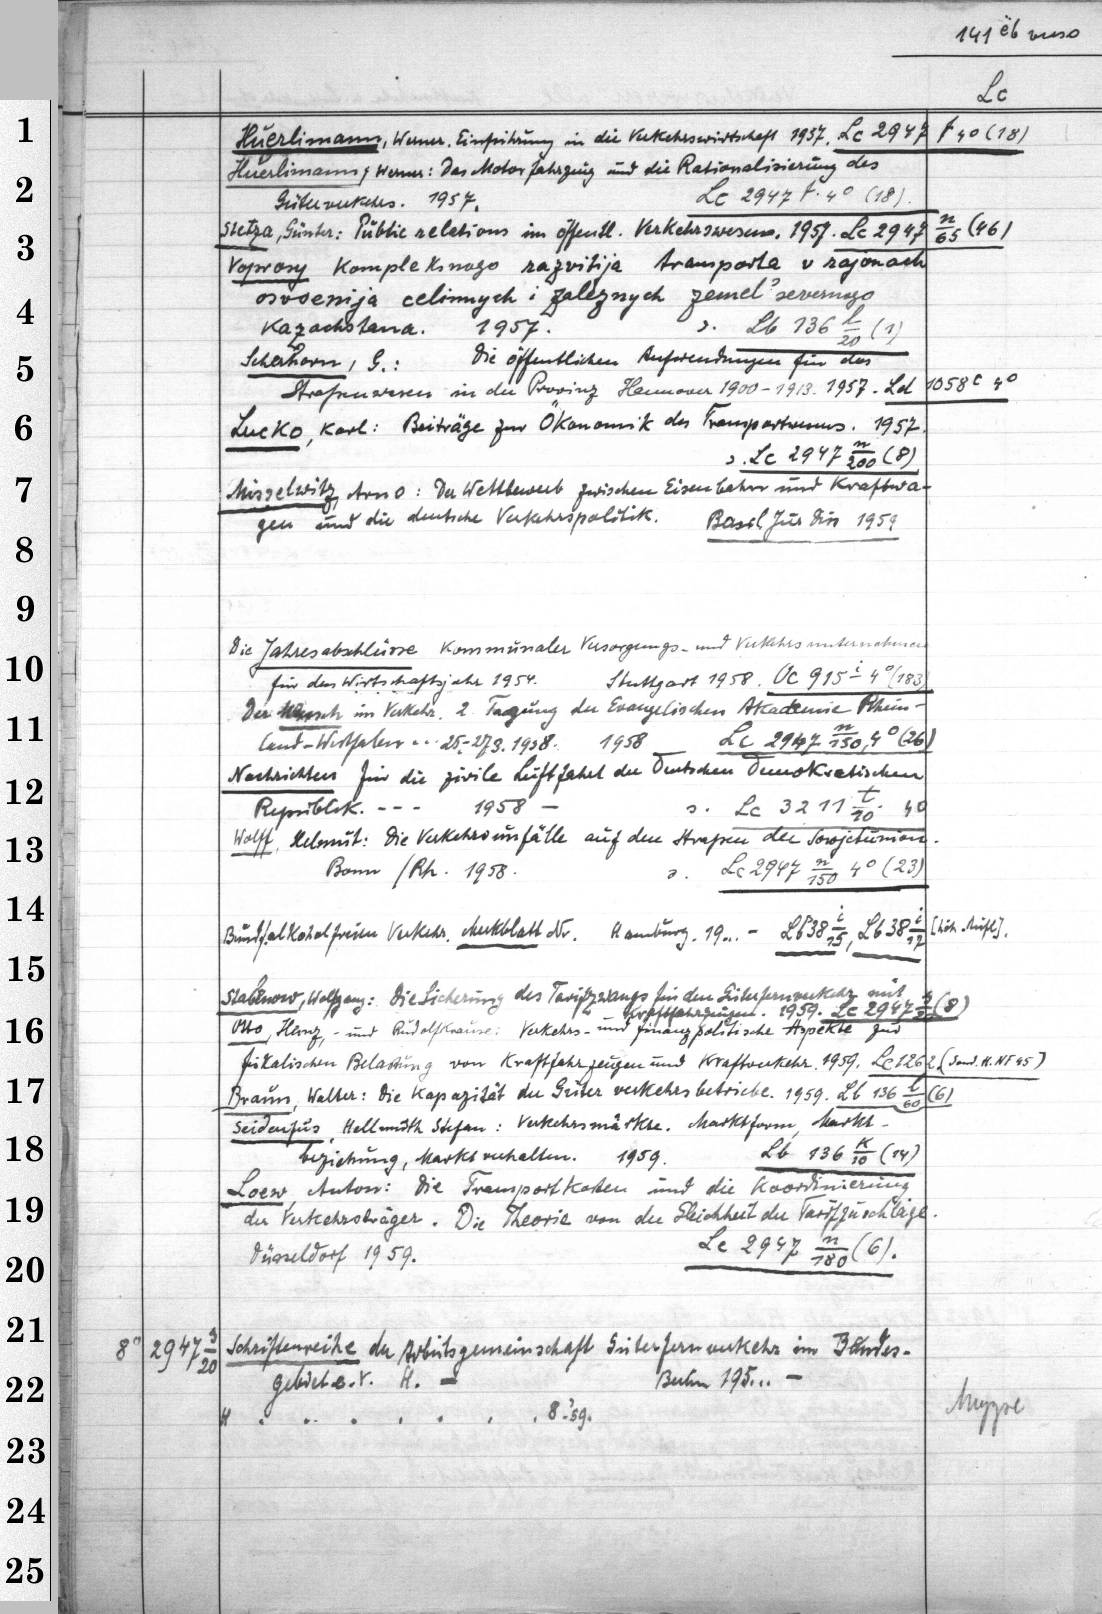 141 verso
Lc
1
Hüerlimann, Werner. Einführung in die Verkehrswirtschaft 1957. Lc 2947 f 4° (18)
Hüerlimann, Werner: Das Motorfahrzeug und die Rationalisierung des
2
Güterverkehrs. 1957. Lc 2947 f. 4° (18).
3
Stetza, Günter: Public relations im öffentl. Verkehrswesen. 1957. Lc 2947 n/65 (46)
Voprosy kompleksnogo razvitija transporta v rajonach
osvoenija celinnych i zaležnych zemel' severnogo
4
Kazachstana. 1957. s. Lb 136 l/20 (1)
5
Scherhorn, G.: Die öffentlichen Aufwendungen für das
Straßenwesen in der Provinz Hannover 1900-1913. 1957. Ld 1058 c 4°
6
Lucko, Karl: Beiträge zur Ökonomik des Transportwesens. 1957.
s. Lc 2947 n/200 (8)
7
Misselwitz, Arno: Der Wettbewerb zwischen Eisenbahn und Kraftwa-
gen und die deutsche Verkehrspolitik. Basel Jur Diss 1959
8
9
Die Jahresabschlüsse kommunaler Versorgungs- und Verkehrsunternehmen
10
für das Wirtschaftsjahr 1954. Stuttgart 1958. Oc 915 i 4° (183)
Der Mensch im Verkehr. 2. Tagung der Evangelischen Akademie Rhein-
11
land-Westfalen ... 25.-27.3. 1958. 1958 Lc 2947 n/150, 4° (26)
Nachrichten für die zivile Luftfahrt der Deutschen Demokratischen
12
Republik. --- 1958 - s. Lc 3211 t/10. 4°
13
Wolff, Helmut: Die Verkehrsunfälle auf den Straßen der Sowjetunion.
Bonn /Rh. 1958. s. Lc 2947 n/150 4° (23)
14
Bund f. alkoholfreien Verkehr. Merkblatt Nr. Hamburg. 19... - Lb 38 i/15, Lb 38 i/17
15
Stabenow, Wolfgang: Die Sicherung des Tarifzwangs für den Güterfernverkehr mit
Kraftfahrzeugen. 1959. Lc 2947 (8)
16
Otto, Heinz, - und Rudolf Krause: Verkehrs- und finanzpolitische Aspekte zur
fiskalischen Belastung von Kraftfahrzeugen und Kraftverkehr. 1959. Lc 1262 (Sond. H. NF 45)
17
Braun, Walter: Die Kapazität der Güterverkehrsbetriebe. 1959. Lb 136 l/60 (6)
Seidenfus, Hellmuth Stefan: Verkehrsmärkte. Marktform, Markt-
18
beziehung, Marktverhalten. 1959. Lb 136 k/10 (14)
Loew, Anton: Die Transportkosten und die Koordinierung
19
der Verkehrsträger. Die Theorie von der Gleichheit der Tarifzuschläge.
Düsseldorf 1959. Lc 2947 n/180 (6).
20
21
8° 2947 3/20 Schriftenreihe der Arbeitsgemeinschaft Güterfernverkehr im Bundes-
22
gebiet e.V. H. - Berlin 195... -
H . . . . . . . . 8. '59.
23
24
25